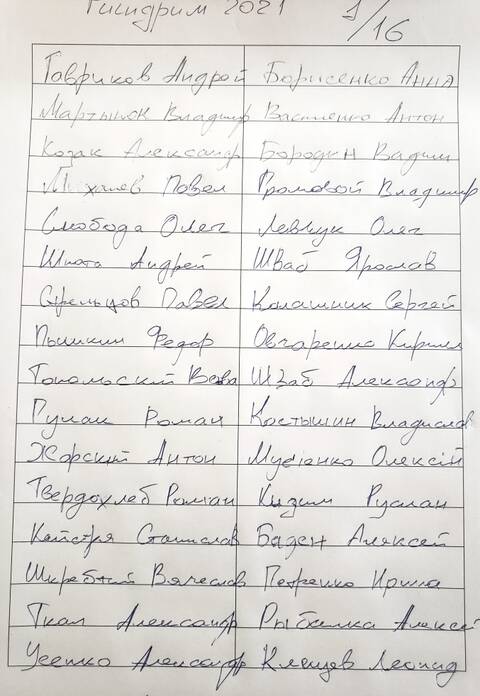 2021 1/16
Гавриков Андрей Борисенко Анна
Мартынюк Владимир Василенко Антон
Козак Александр Бородин Вадим
Михалев Павел Громовой Владимир
Слобода Олег Левчук Олег
Шпота Андрей Шваб Ярослав
Стрельцов Павел Калашник Сергей
Пышкин Федор Овчаренко Кирилл
Вова Шваб Александр
Гулак Роман Костышин Владислав
Жарский Антон Мусіэнко Олексій
Твердохлеб Роман Кизим Руслан
Станислав Баден Алексей
Вячеслав Петренко Ирина
Ткач Александр Рыбалка Алексей
Усенко Александр Клещев Леонид